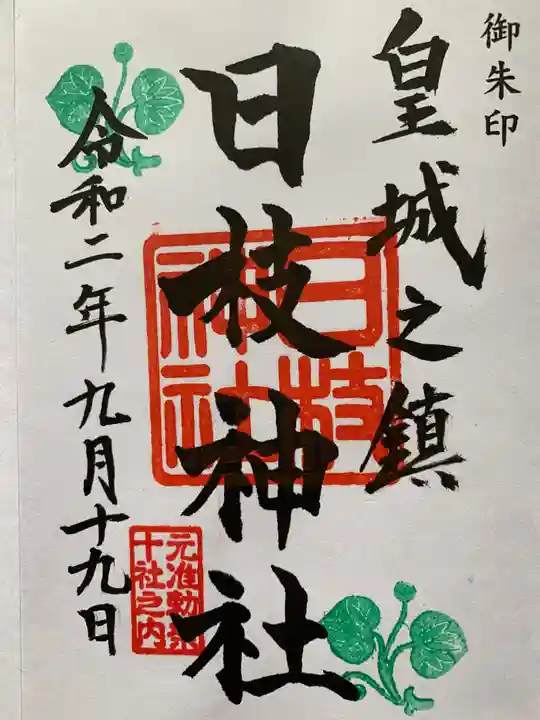 御朱印
皇城之鎮
日枝神社
日枝
神社
令和二年九月十九日
元准勅祭
十社之内